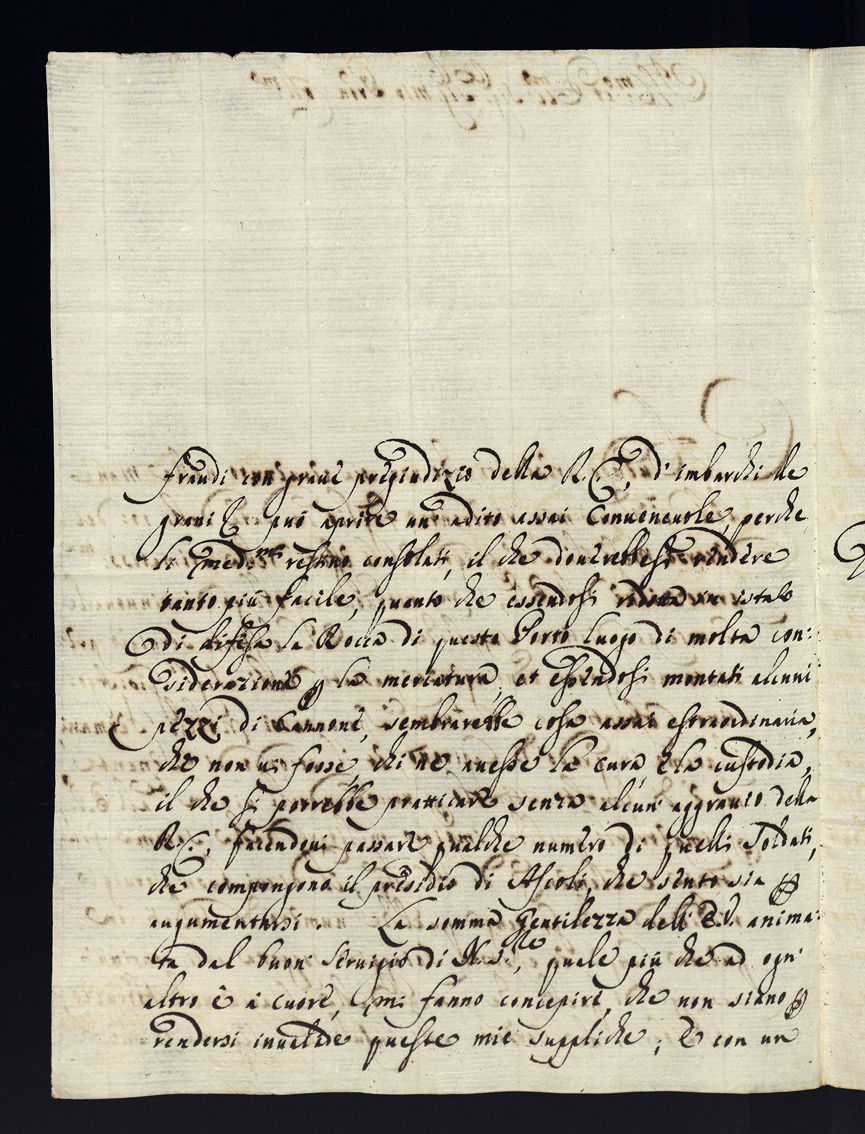 fraudi con graue pregiudizio della R. C., d'imbarchi de
grani & può aprire un adito assai Conueneuole, perche
li med.mi restino consolati, il che dourebbesi rendere
tanto più facile, quanto che essendosi ridotta in istato
di difesa la Rocca di questo Porto luogo di molta con:
siderazione p la mercatura, et essendosi montati alcuni
pezzi di Cannone, sembrarebbe cosa assai estraordinaria,
che non ui fosse, chi ne auesse la cura, e la custodia,
il che si potrebbe pratticare senza alcun' aggrauio della
R. C., facendoui passare qualche numero di quelli Soldati,
che compongono il presidio di Ascoli, che sento sia p
augumentarsi. La somma Gentilezza dell' E. V. anima:
ta dal buon Seruigio di N. S.re, quale più che ad ogn'
altro è à cuore, mi fanno concepire, che non siano p
rendersi inualide queste mie suppliche; E con un